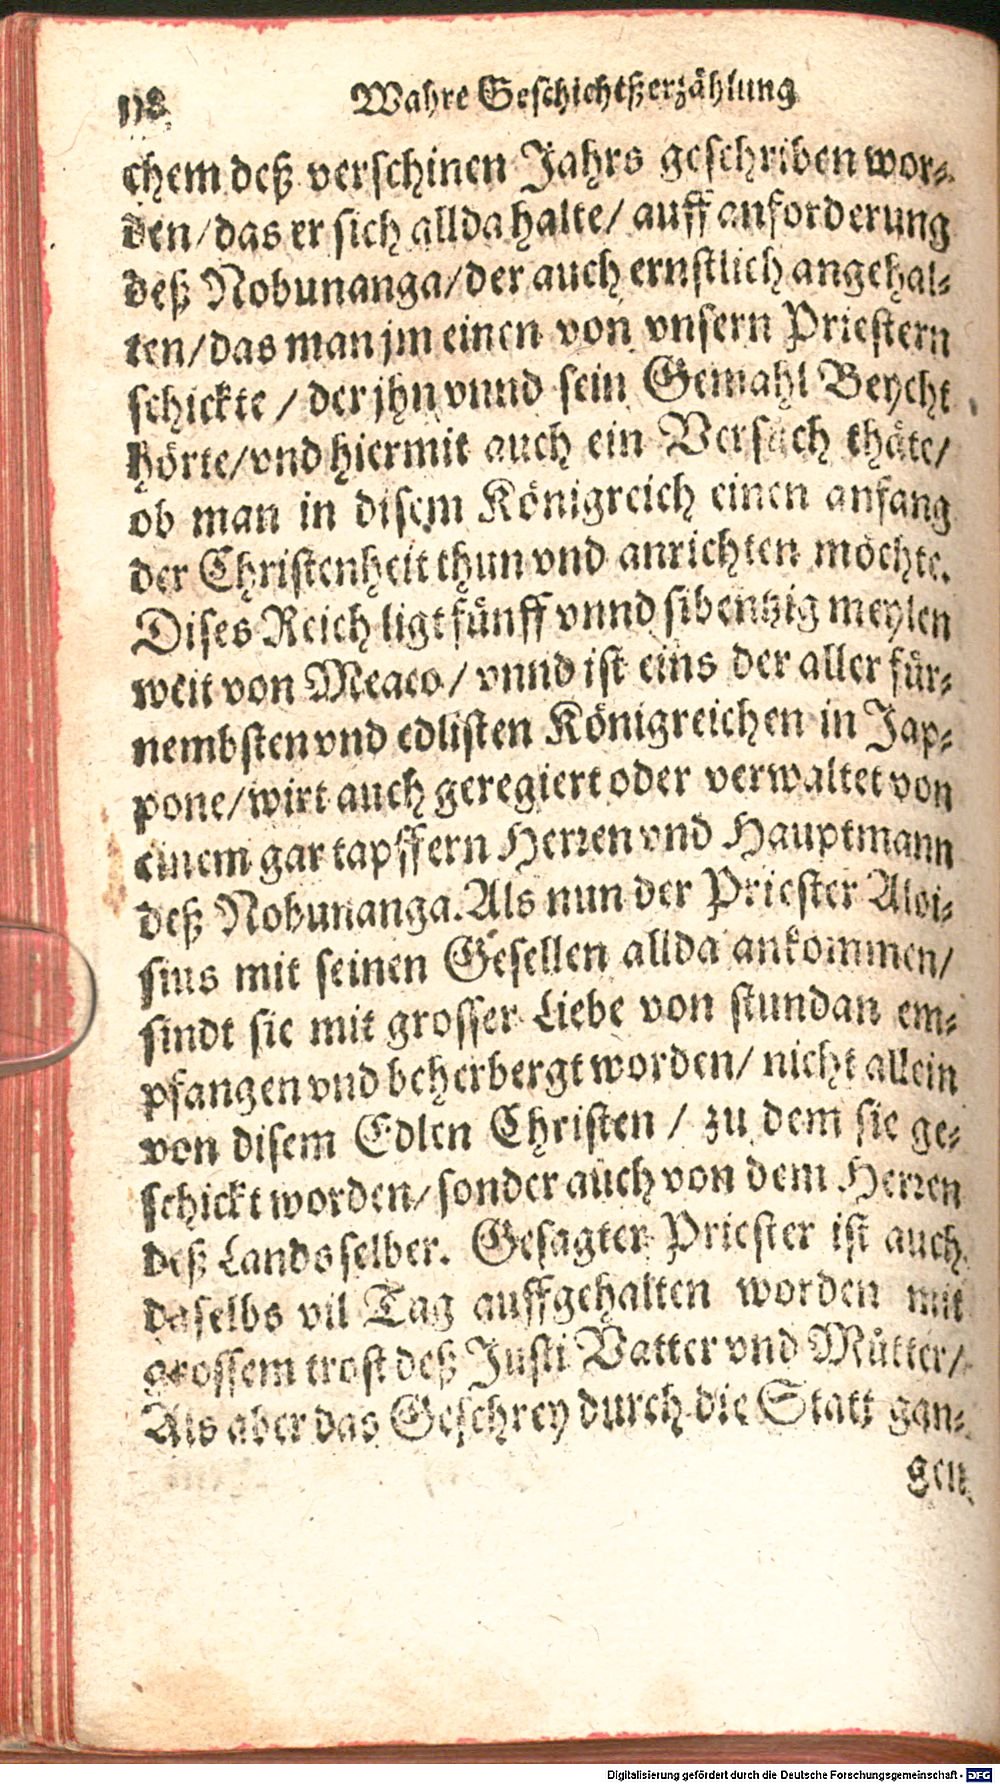 118 Wahre Geschichtßerzählung
chem deß verschinen Jahrs geschriben wor⸗
den/das er sich allda halte/ auff anforderung
deß Nobunanga/der auch ernstlich angehal⸗
ten/das man jm einen von vnsern Priestern
schickte / der jhn vnnd sein Gemahl Beycht
hörte/vnd hiermit auch ein Versuch thäte/
ob man in disem Königreich einen anfang
der Christenheit thun vnd anrichten möchte.
Dises Reich ligt fünff vnnd sibentzig meylen
weit von Meaco/ vnnd ist eins der aller für⸗
nembsten vnd edlisten Königreichen in Jap⸗
pone/wirt auch geregiert oder verwaltet von
einem gar tapffern Herren vnd Hauptmann
deß Nobunanga. Als nun der Priester Aloi⸗
sius mit seinen Gesellen allda ankommen/
sindt sie mit grosser Liebe von stundan em⸗
pfangen vnd beherbergt worden/ nicht allein
von disem Edlen Christen / zu dem sie ge⸗
schickt worden/ sonder auch von dem Herren
deß Lands selber. Gesagter Priester ist auch
daselbs vil Tag auffgehalten worden mit
grossem trost deß Justi Vatter vnd Mütter/
Als aber das Geschrey durch die Statt gan⸗
gen
Digitalisierung gefördert durch die Deutsche Forschungsgemeinschaft - DFG